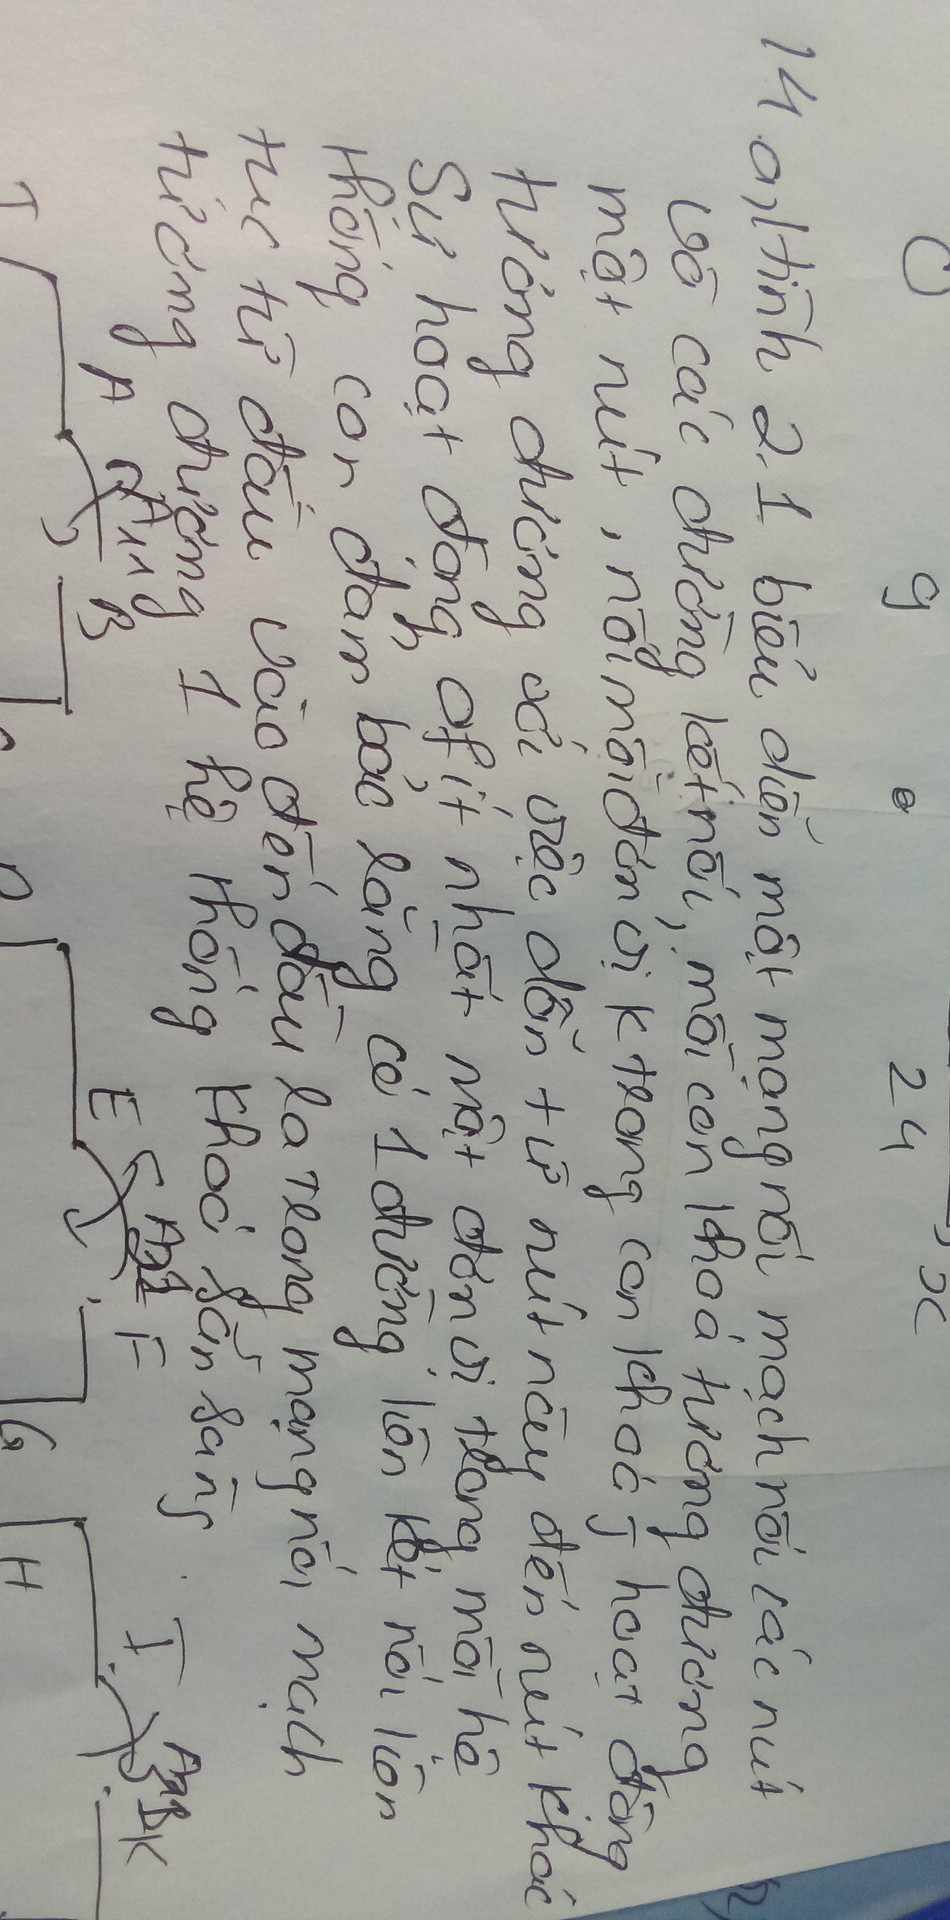 9 24 x
14 a, Hình 2.1 biểu diễn một mạng nối mạch nối các nút
và các đường kết nối, mỗi con khoá tương đương
một nút, nối mỗi đơn vị k trong con khoá j hoạt động
tương đương với việc dẫn từ nút này đến nút khác
Sự hoạt động of ít nhất một đơn vị trong mỗi hệ
thống con đảm bảo rằng có 1 đường liên kết nối liên
tục từ đầu vào đến đầu ra trong mạng nối mạch
tương đương 1 hệ thống khoá sẵn sàng.
A A11 B E F I K
G H